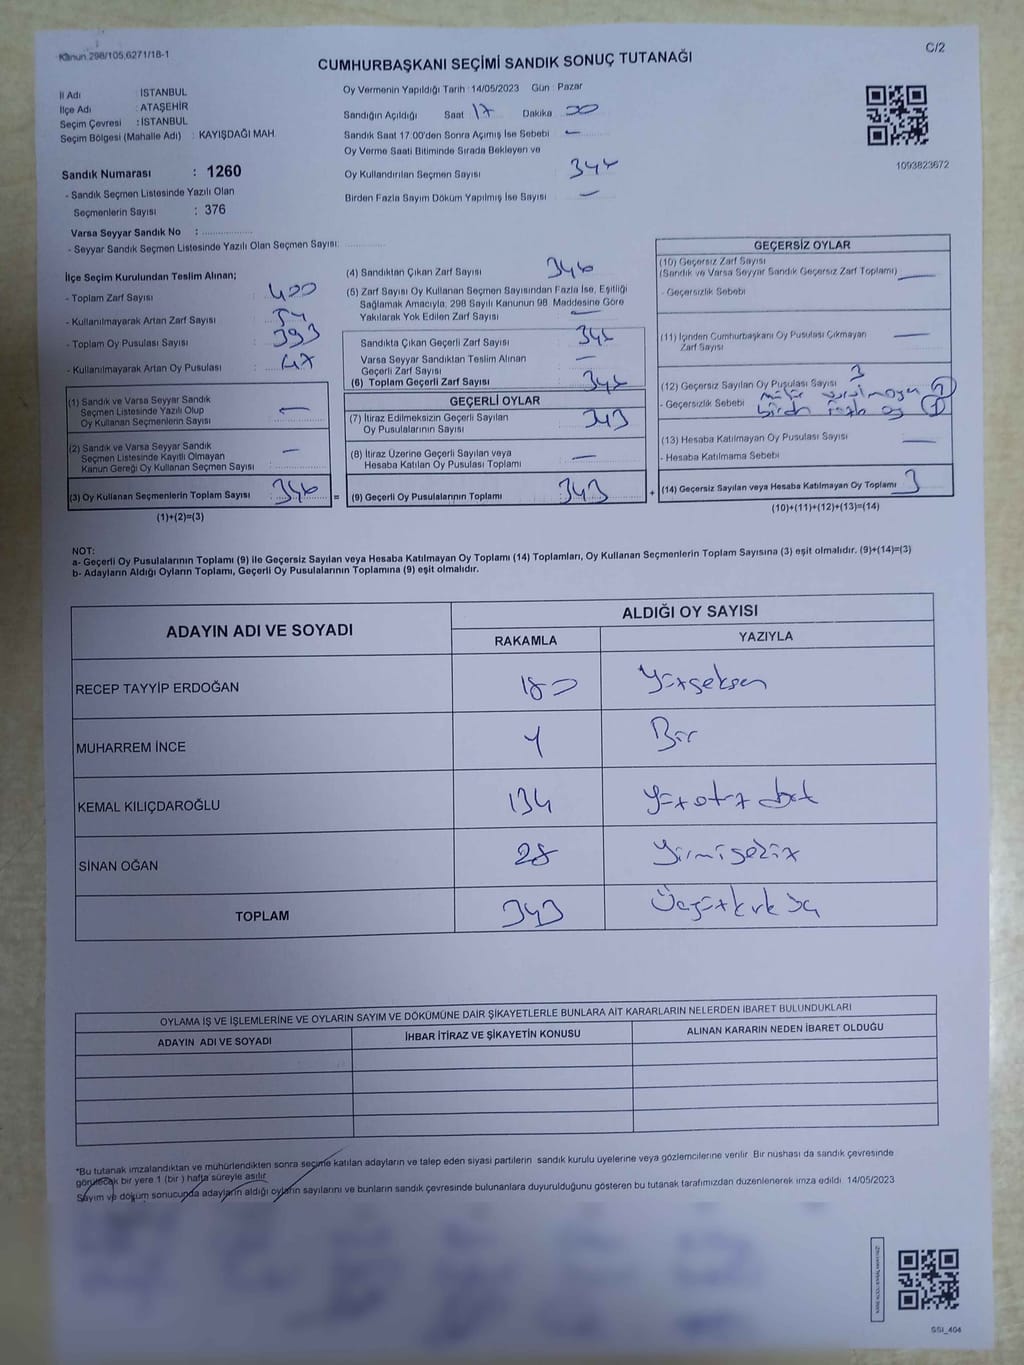 Kanun 298/105,6271/18-1
C/2
CUMHURBAŞKANI SEÇİMİ SANDIK SONUÇ TUTANAĞI
İl Adı : İSTANBUL
İlçe Adı : ATAŞEHİR
Seçim Çevresi : İSTANBUL
Seçim Bölgesi (Mahalle Adı) : KAYIŞDAĞI MAH.
Sandık Numarası : 1260
- Sandık Seçmen Listesinde Yazılı Olan
Seçmenlerin Sayısı : 376
Varsa Seyyar Sandık No :
- Seyyar Sandık Seçmen Listesinde Yazılı Olan Seçmen Sayısı:
Oy Vermenin Yapıldığı Tarih : 14/05/2023 Gün : Pazar
Sandığın Açıldığı Saat 17 Dakika 00
Sandık Saat 17.00'den Sonra Açımış İse Sebebi —
Oy Verme Saati Bitiminde Sırada Bekleyen ve
Oy Kullandırılan Seçmen Sayısı
Birden Fazla Sayım Döküm Yapılmış İse Sayısı —
1093823672
İlçe Seçim Kurulundan Teslim Alınan;
- Toplam Zarf Sayısı 400
- Kullanılmayarak Artan Zarf Sayısı 54
- Toplam Oy Pusulası Sayısı 393
- Kullanılmayarak Artan Oy Pusulası 47
(1) Sandık ve Varsa Seyyar Sandık
Seçmen Listesinde Yazılı Olup
Oy Kullanan Seçmenlerin Sayısı —
(2) Sandık ve Varsa Seyyar Sandık
Seçmen Listesinde Kayıtlı Olmayan
Kanun Gereği Oy Kullanan Seçmen Sayısı —
(3) Oy Kullanan Seçmenlerin Toplam Sayısı 346 =
(1)+(2)=(3)
(4) Sandıktan Çıkan Zarf Sayısı 346
(5) Zarf Sayısı Oy Kullanan Seçmen Sayısından Fazla İse, Eşitliği
Sağlamak Amacıyla; 298 Sayılı Kanunun 98. Maddesine Göre
Yakılarak Yok Edilen Zarf Sayısı —
Sandıkta Çıkan Geçerli Zarf Sayısı 346
Varsa Seyyar Sandıktan Teslim Alınan
Geçerli Zarf Sayısı —
(6) Toplam Geçerli Zarf Sayısı 346
GEÇERLİ OYLAR
(7) İtiraz Edilmeksizin Geçerli Sayılan
Oy Pusulalarının Sayısı 343
(8) İtiraz Üzerine Geçerli Sayılan veya
Hesaba Katılan Oy Pusulası Toplamı —
(9) Geçerli Oy Pusulalarının Toplamı 343 +
GEÇERSİZ OYLAR
(10) Geçersiz Zarf Sayısı
(Sandık ve Varsa Seyyar Sandık Geçersiz Zarf Toplamı) —
- Geçersizlik Sebebi
(11) İçinden Cumhurbaşkanı Oy Pusulası Çıkmayan
Zarf Sayısı —
(12) Geçersiz Sayılan Oy Pusulası Sayısı 3
- Geçersizlik Sebebi
birden fazla oy 1
(13) Hesaba Katılmayan Oy Pusulası Sayısı —
- Hesaba Katılmama Sebebi
(14) Geçersiz Sayılan veya Hesaba Katılmayan Oy Toplamı 3
(10)+(11)+(12)+(13)=(14)
NOT:
a- Geçerli Oy Pusulalarının Toplamı (9) ile Geçersiz Sayılan veya Hesaba Katılmayan Oy Toplamı (14) Toplamları, Oy Kullanan Seçmenlerin Toplam Sayısına (3) eşit olmalıdır. (9)+(14)=(3)
b- Adayların Aldığı Oyların Toplamı, Geçerli Oy Pusulalarının Toplamına (9) eşit olmalıdır.
ADAYIN ADI VE SOYADI
ALDIĞI OY SAYISI
RAKAMLA YAZIYLA
RECEP TAYYİP ERDOĞAN 180 Yüzseksen
MUHARREM İNCE 1 Bir
KEMAL KILIÇDAROĞLU 134 Yüzotuz dört
SİNAN OĞAN 28 Yirmisekiz
TOPLAM 343 Üçyüzkırk üç
OYLAMA İŞ VE İŞLEMLERİNE VE OYLARIN SAYIM VE DÖKÜMÜNE DAİR ŞİKAYETLERLE BUNLARA AİT KARARLARIN NELERDEN İBARET BULUNDUKLARI
ADAYIN ADI VE SOYADI
İHBAR İTİRAZ VE ŞİKAYETİN KONUSU
ALINAN KARARIN NEDEN İBARET OLDUĞU
*Bu tutanak imzalandıktan ve mühürlendikten sonra seçime katılan adayların ve talep eden siyasi partilerin sandık kurulu üyelerine veya gözlemcilerine verilir. Bir nüshası da sandık çevresinde
görülecek bir yere 1 (bir ) hafta süreyle asılır.
Sayım ve döküm sonucunda adayların aldığı oyların sayılarını ve bunların sandık çevresinde bulunanlara duyurulduğunu gösteren bu tutanak tarafımızdan düzenlenerek imza edildi. 14/05/2023